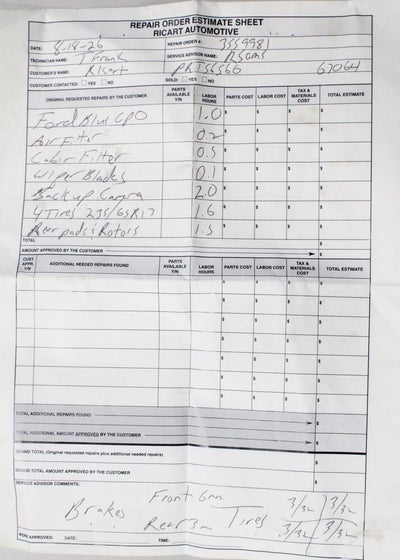 REPAIR ORDER ESTIMATE SHEET
RICART AUTOMOTIVE
DATE: 8-18-26 REPAIR ORDER #: 3559981
TECHNICIAN NAME: T Frank SERVICE ADVISOR NAME:
CUSTOMER'S NAME: Ricart 67064
CUSTOMER CONTACTED: YES NO SOLD: YES NO
ORIGINAL REQUESTED REPAIRS BY THE CUSTOMER PARTS AVAILABLE Y/N LABOR HOURS PARTS COST LABOR COST TAX & MATERIALS COST TOTAL ESTIMATE
Ford Blue CPO 1.0 $ $ $ $
Air Filter 0.2 $ $ $ $
Cabin Filter 0.5 $ $ $ $
Wiper Blades 0.1 $ $ $ $
Backup Camera 2.0 $ $ $ $
4 Tires 235/65R17 1.6 $ $ $ $
Rear pads & Rotors 1.5 $ $ $ $
TOTAL $
AMOUNT APPROVED BY THE CUSTOMER $
CUST. APPR. Y/N ADDITIONAL NEEDED REPAIRS FOUND PARTS AVAILABLE Y/N LABOR HOURS PARTS COST LABOR COST TAX & MATERIALS COST TOTAL ESTIMATE
$ $ $ $
$ $ $ $
$ $ $ $
$ $ $ $
$ $ $ $
$ $ $ $
$ $ $ $
TOTAL ADDITIONAL REPAIRS FOUND $
TOTAL ADDITIONAL AMOUNT APPROVED BY THE CUSTOMER $
GRAND TOTAL (Original requested repairs plus additional needed repairs) $
GRAND TOTAL AMOUNT APPROVED BY THE CUSTOMER $
SERVICE ADVISOR COMMENTS:
Front 6mm 3/32 3/32
Brakes Rear 3m Tires 3/32 3/32
WORK APPROVED: DATE: TIME: